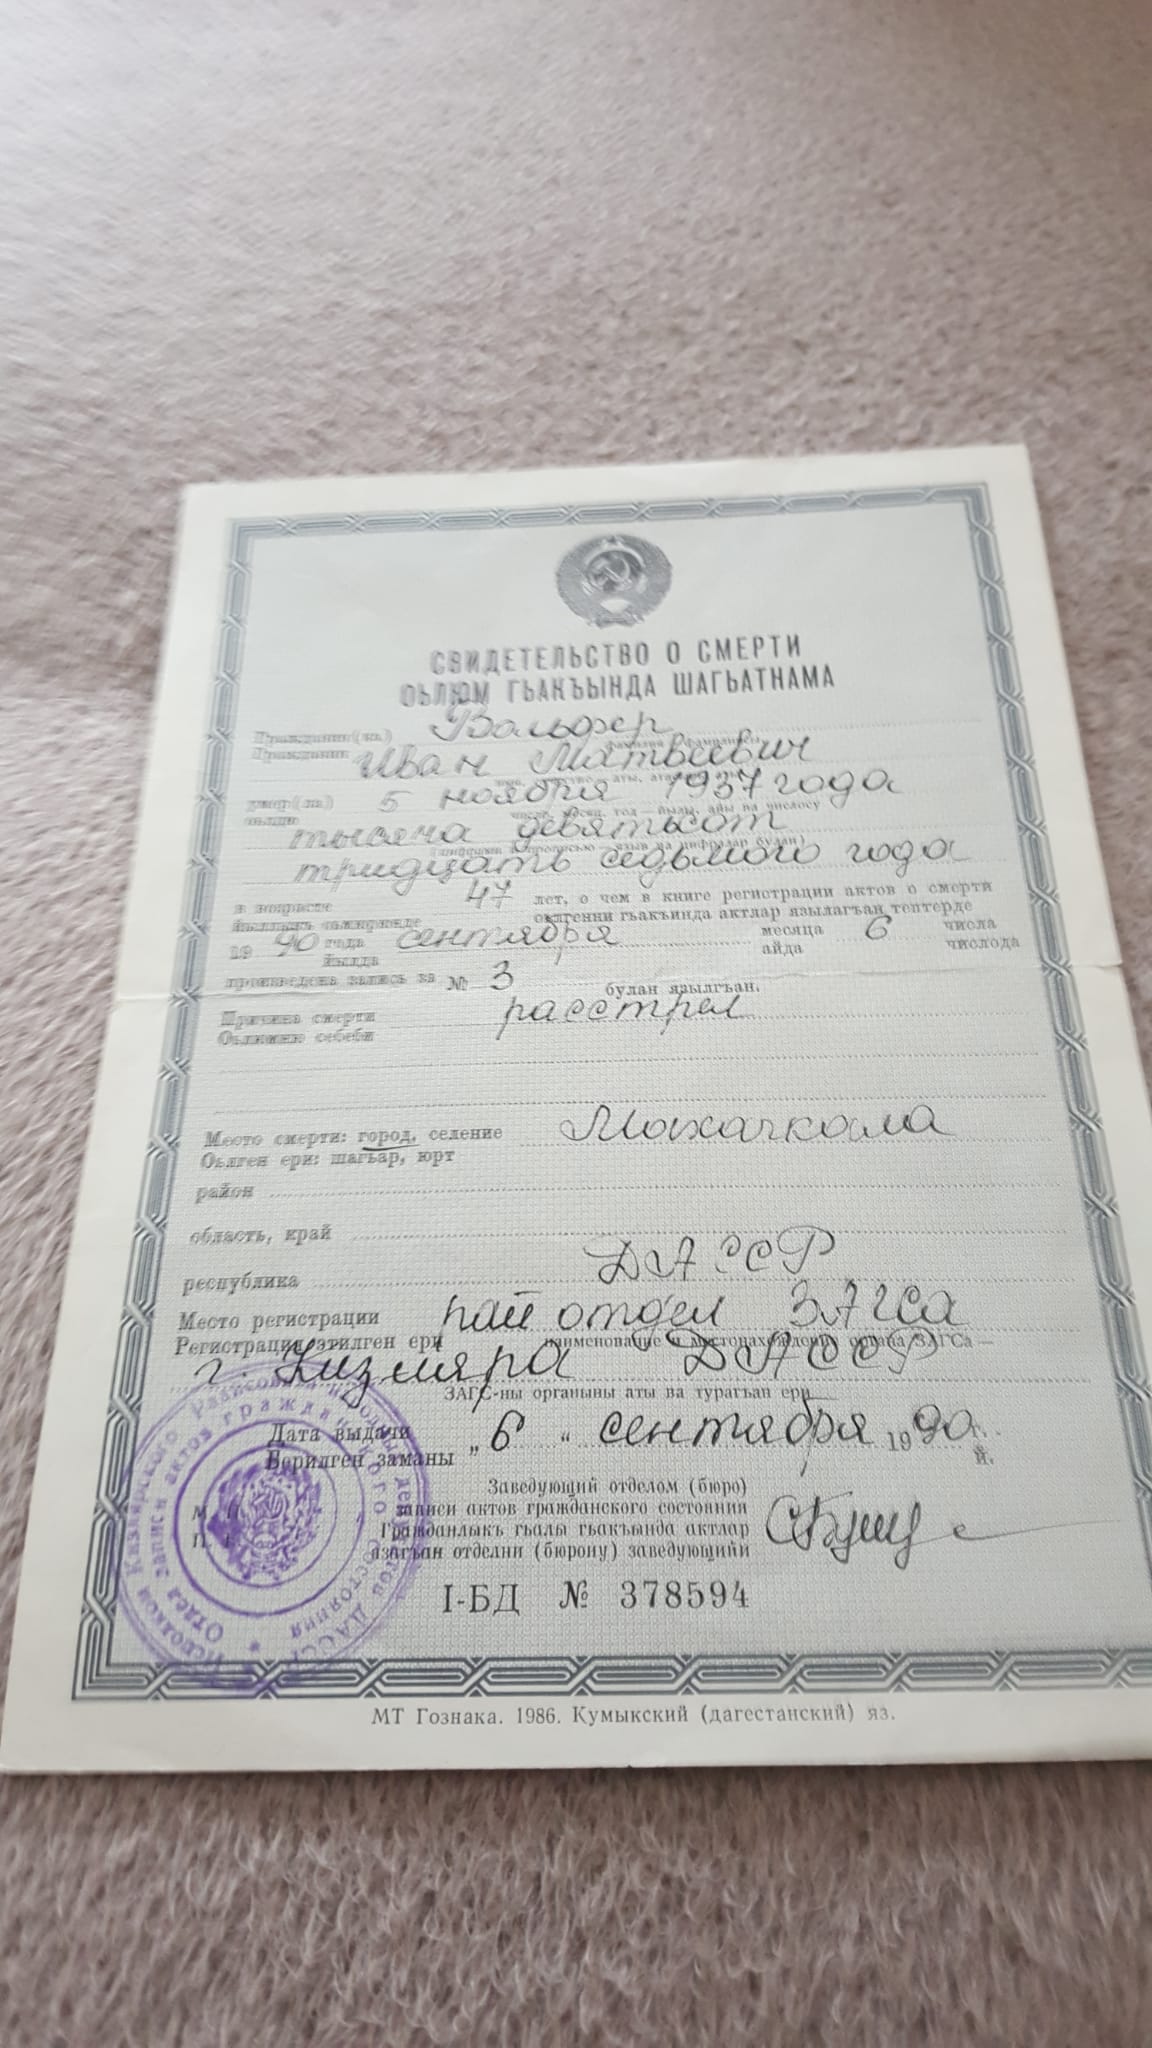 СВИДЕТЕЛЬСТВО О СМЕРТИ
ОЬЛЮМ ГЬАКЪЫНДА ШАГЬАТНАМА
Гражданин(ка) Вольфер
Гражданин
Иван Матвеевич
умер(ла) 5 ноября 1937 года
оьлдю число, месяц, год — йылы, айы ва числосу
тысяча девятьсот
(цифрами и прописью — язып ва цифралар булан)
тридцать седьмого года
в возрасте 47 лет, о чем в книге регистрации актов о смерти
оьлгенни гьакъында актлар язылагъан тептерде
19 90 года сентября месяца 6 числа
йылда айда числода
произведена запись за № 3 булан язылгъан.
Причина смерти расстрел
Оьлюмню себеби
Место смерти: город, селение Махачкала
Оьлген ери: шагьар, юрт
район
область, край
республика ДАССР
Место регистрации рай отдел ЗАГСа
Регистрация этилген ери наименование и местонахождение органа ЗАГСа —
г. Кизляра ДАССР
ЗАГС-ны органыны аты ва турагъан ери
Дата выдачи
Берилген заманы „ 6 “ сентября 19 90 г.
й.
Заведующий отделом (бюро)
записи актов гражданского состояния
Гражданлыкъ гьалы гьакъында актлар
язагъан отделни (бюрону) заведующийи
М. П.
Отдел записи актов гражданского состояния
I-БД № 378594
МТ Гознака. 1986. Кумыкский (дагестанский) яз.